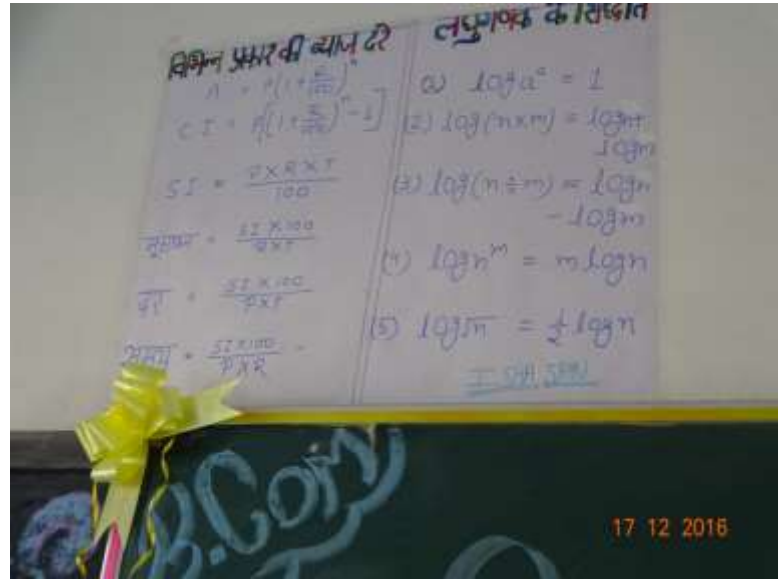 विभिन्न प्रकार की व्याज दरें
A = P(1+R/100)^n
CI = P[(1+R/100)^n - 1]
SI = P×R×T/100
मूलधन = SI×100/R×T
दर = SI×100/P×T
समय = SI×100/P×R
लघुगणक के सिद्धांत
log a^a = 1
(2) log(n×m) = logn+
logm
(3) log(n÷m) = logn
- logm
(4) logn^m = m logn
(5) log√n = ½ logn
B.Com
17 12 2016